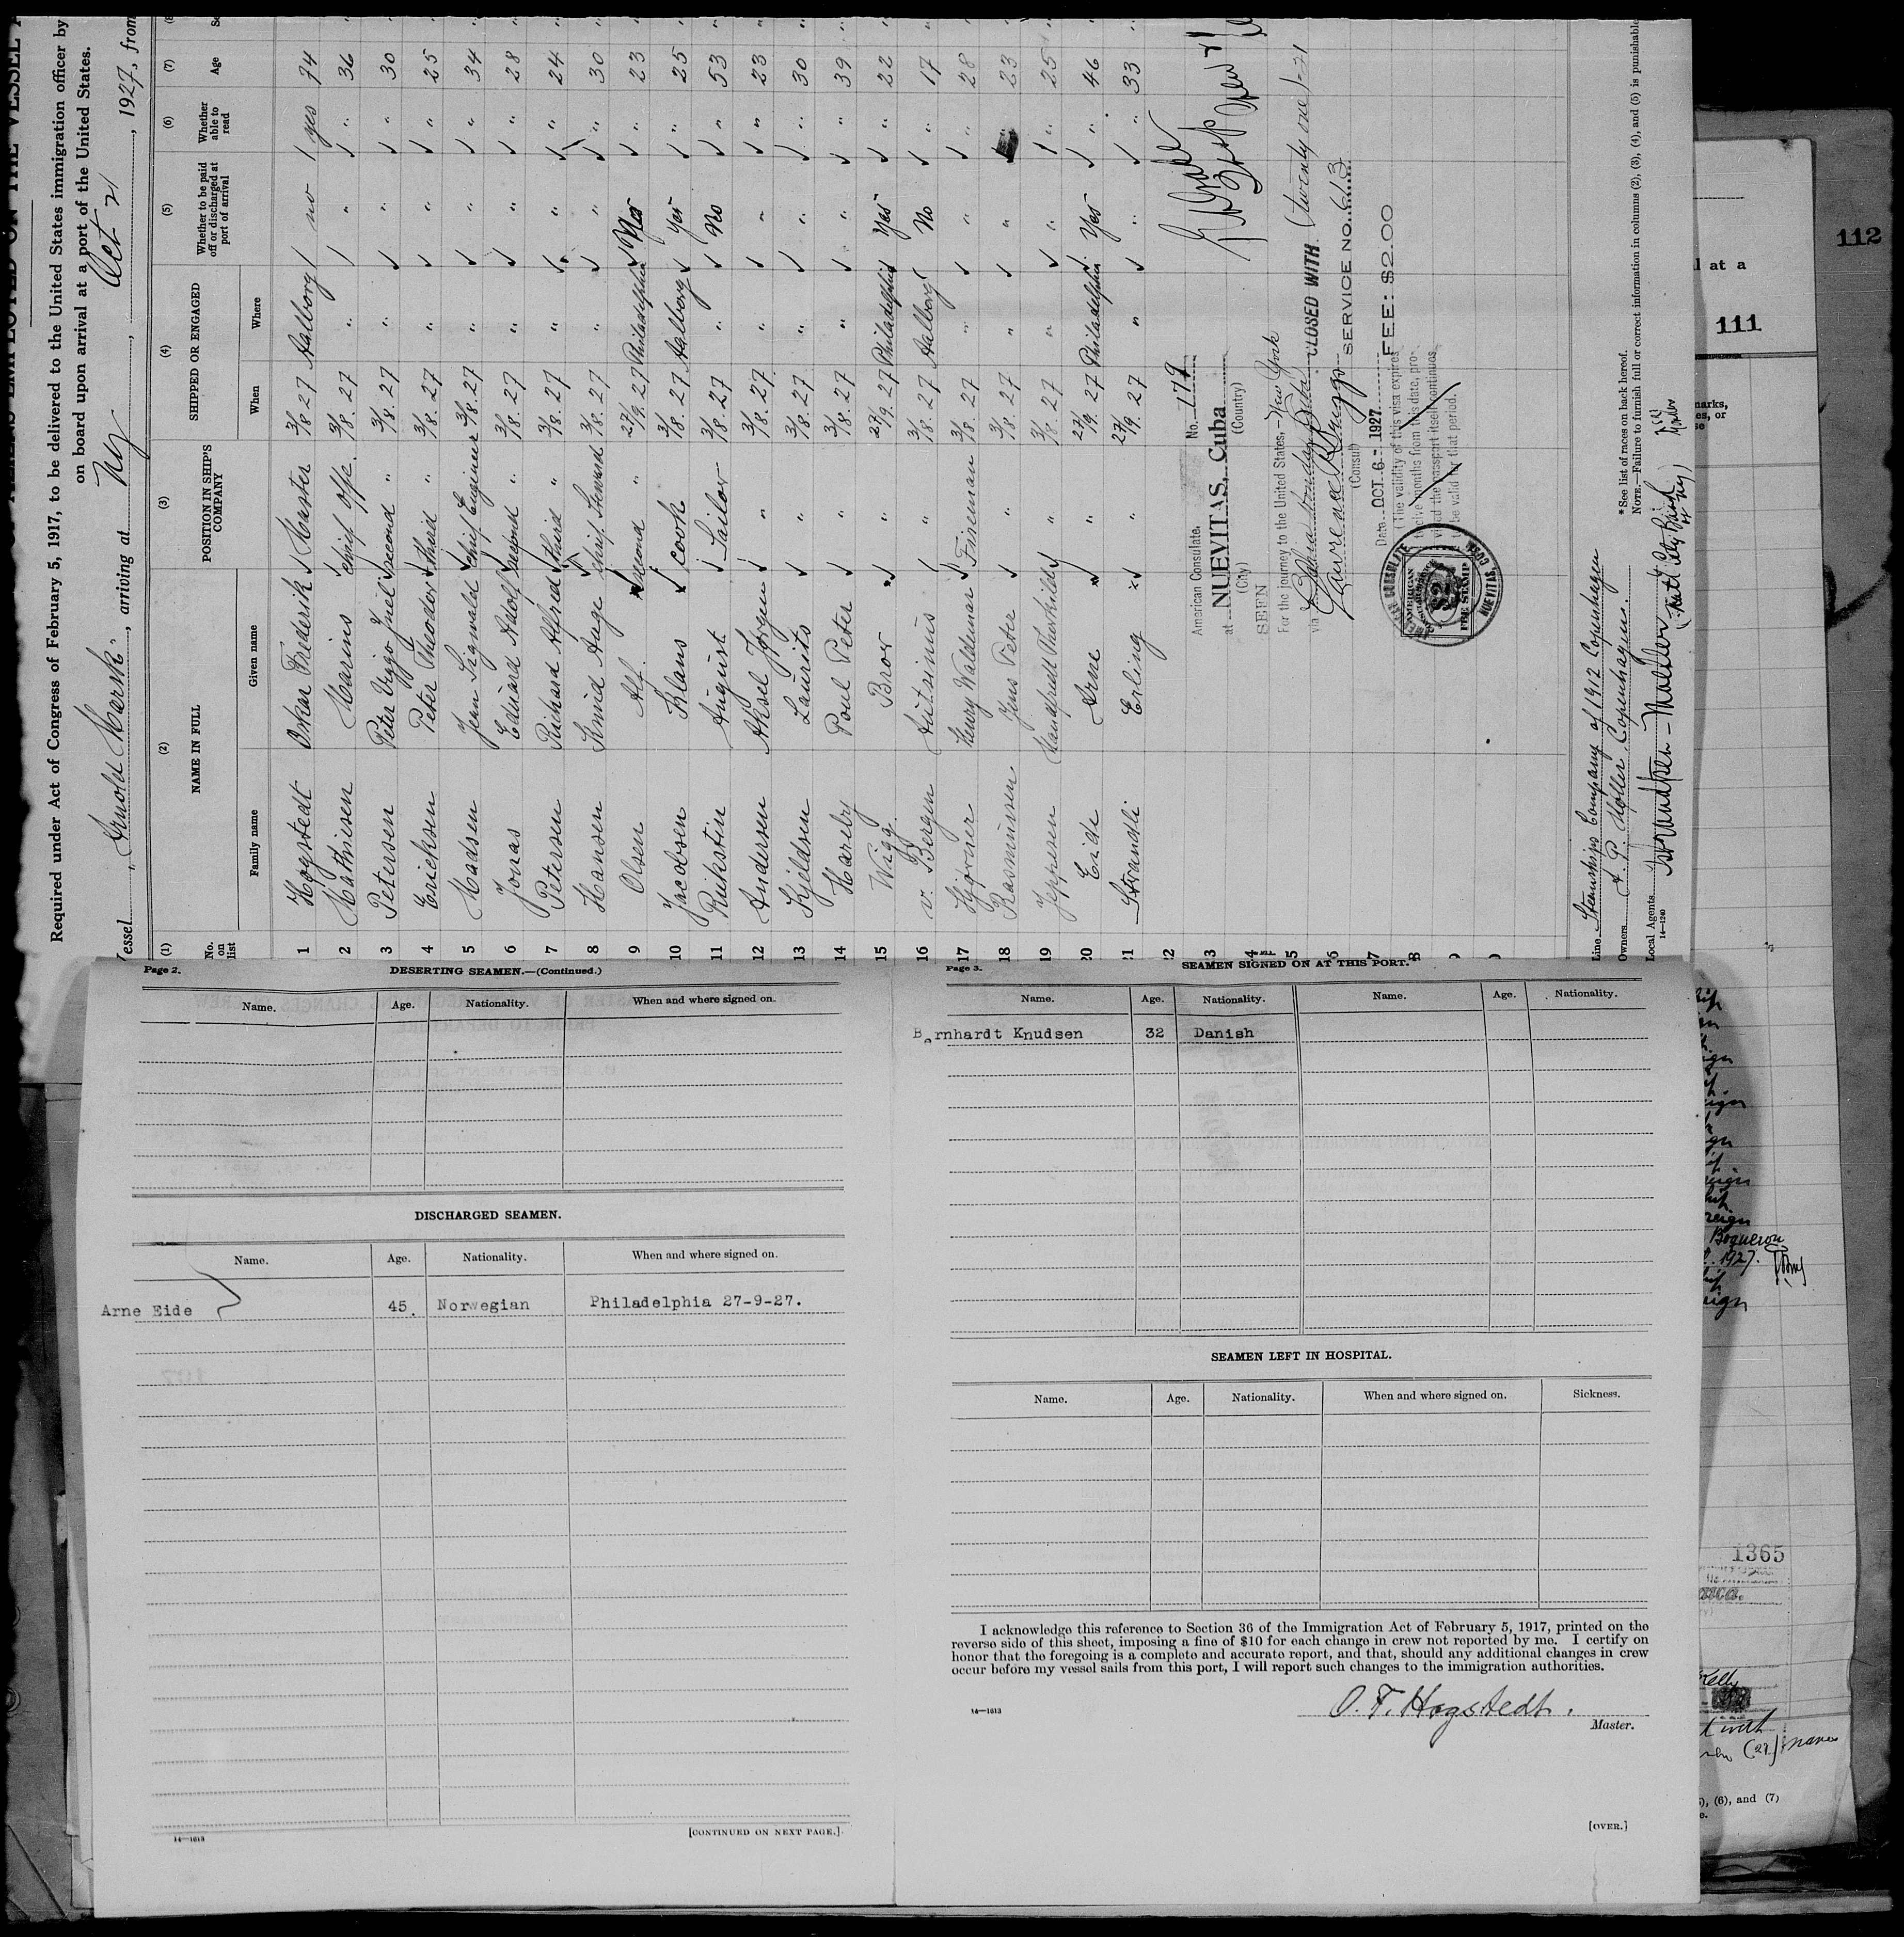 OF ALIENS EMPLOYED ON THE VESSEL
Required under Act of Congress of February 5, 1917, to be delivered to the United States immigration officer by
on board upon arrival at a port of the United States.
Vessel "Arnold Mærsk", arriving at NY, Oct 21, 1927, from
(1) (2) (3) (4) (5) (6) (7)
No. on list
NAME IN FULL
Family name
Given name
POSITION IN SHIP'S COMPANY
SHIPPED OR ENGAGED
When
Where
Whether to be paid off or discharged at port of arrival
Whether able to read
Age
1 Hogstedt Oskar Frederik Master 3/8 27 Aalborg no yes 74
2 Mathiesen Marius chief offc. 3/8. 27 " " " 36
3 Petersen Peter Viggo Juel second " 3/8. 27 " " " 30
4 Ericksen Peter Theodor third " 3/8. 27 " " " 25
5 Madsen Jean Sigvald chief Engineer 3/8. 27 " " " 34
6 Jonas Eduard Adolf second " 3/8. 27 " " " 28
7 Petersen Richard Alfred third " 3/8. 27 " " " 24
8 Hansen Knud Aage chief Steward 3/8. 27 " " " 30
9 Olsen Alf. second " 27/9. 27 Philadelphia " 23
10 Jacobsen Klaus cook 3/8. 27 Aalborg Yes " 25
11 Rukstin August Sailor 3/8. 27 " No " 53
12 Andersen Aksel Jörgen " 3/8. 27 " " " 23
13 Kjeldsen Laurits " 3/8. 27 " " " 30
14 Hareby Poul Peter " 3/8. 27 " " " 39
15 Wigg Bror " 27/9. 27 Philadelphia Yes " 22
16 v. Bergen " 3/8. 27 Aalborg No " 17
17 Henry Waldemar Fireman 3/8. 27 " " " 28
18 Rasmussen Jens Peter " 3/8. 27 " " " 23
19 Jeppesen " 3/8 27 " " " 25
20 Eide Arne " 27/9. 27 Philadelphia Yes " 46
21 Strandli Erling " 27/9. 27 " " " 33
22
American Consulate. No. 179
at NUEVITAS, Cuba
(City) (Country)
SEEN
For the journey to the United States, New York
via
(Consul)
Date OCT. 6 - 1927
(The validity of this visa expires twelve months from this date, provided the passport itself continues to be valid for that period.)
CLOSED WITH (twenty one) - 21
SERVICE NO. 613
FEE: $2.00
AMERICAN CONSULATE
NUEVITAS, CUBA
AMERICAN
$2
FEE STAMP
Line Steamship Company of 1912 Copenhagen
Owners A. P. Möller Copenhagen.
Local Agents
*See list of races on back hereof.
NOTE.—Failure to furnish full or correct information in columns (2), (3), (4), and (5) is punishable
14—1240
Page 2.
DESERTING SEAMEN.—(Continued.)
Name. Age. Nationality. When and where signed on.
DISCHARGED SEAMEN.
Name. Age. Nationality. When and where signed on.
Arne Eide 45. Norwegian Philadelphia 27-9-27.
14—1613
[CONTINUED ON NEXT PAGE.]
Page 3.
SEAMEN SIGNED ON AT THIS PORT.
Name. Age. Nationality. Name. Age. Nationality.
Bernhardt Knudsen 32 Danish
SEAMEN LEFT IN HOSPITAL.
Name. Age. Nationality. When and where signed on. Sickness.
I acknowledge this reference to Section 36 of the Immigration Act of February 5, 1917, printed on the
reverse side of this sheet, imposing a fine of $10 for each change in crew not reported by me. I certify on
honor that the foregoing is a complete and accurate report, and that, should any additional changes in crew
occur before my vessel sails from this port, I will report such changes to the immigration authorities.
14—1613
O. F. Hogstedt.
Master.
[OVER.]
112
l at a
111
Boqueron
1927.
1365
Kelly
(6), and (7)